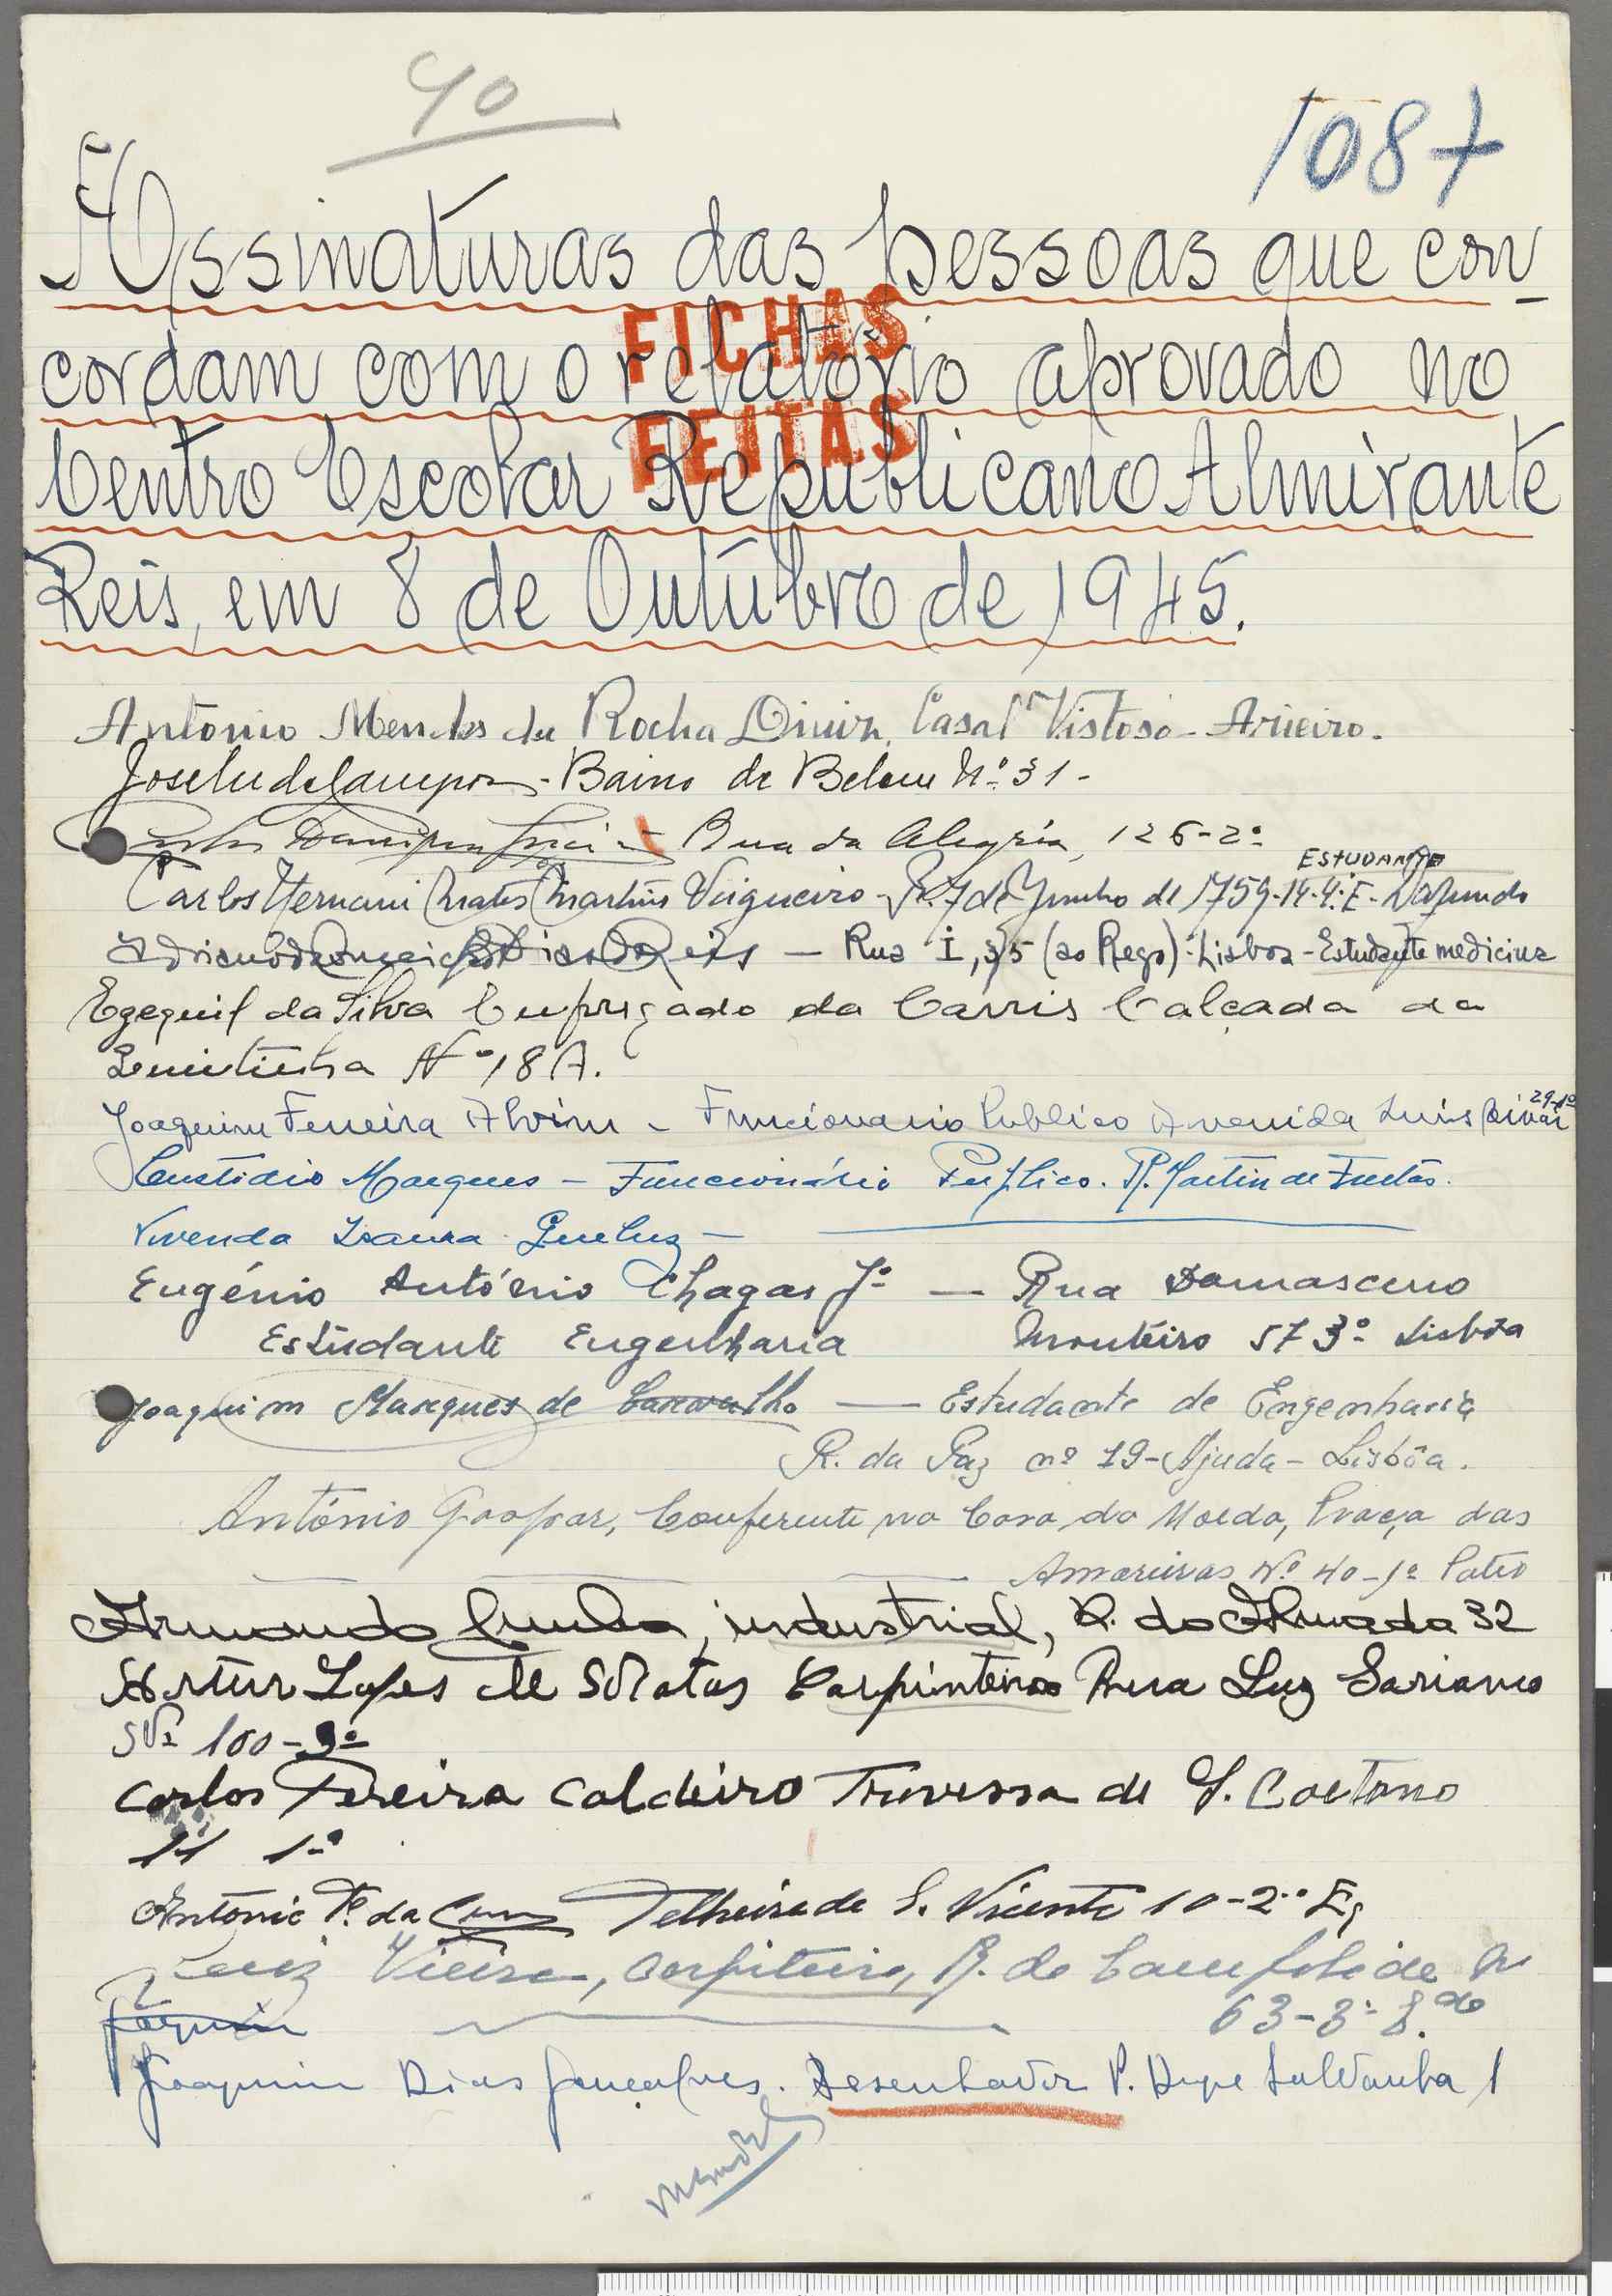 40
1087
Assinaturas das pessoas que con-
cordam com o relatório aprovado no
FICHAS
FEITAS
Centro Escolar Republicano Almirante
Reis, em 8 de Outubro de 1945.
António Mendes da Rocha Diniz, Casal Vistoso - Arieiro.
José Lu de Campos - Bairro de Belem Nº 31 -
Rua da Alegria, 126-2º
ESTUDANTE
Carlos Hernani Matos Martins Vigueiro - R. 7 de Junho de 1759-14-4º E - Dafundo
Adriano da Conceição Dias Reis — Rua I, 35 (ao Rego) - Lisboa - Estudante medicina
Ezequiel da Silva Empregado da Carris Calçada da
Nº 18 A.
29-1º
Joaquim Ferreira Alvim - Funcionario Publico Avenida Luis Bivar
Custódio Marques - Funcionário Público. R. Martim de Freitas.
Vivenda Isaura Queluz -
Eugénio António Chagas Jº — Rua Damasceno
Estudante Engenharia Monteiro 57 3º Lisbôa
Joaquim Marques de Carvalho — Estudante de Engenharia
R. da Paz nº 19 - Ajuda - Lisbôa.
António Gaspar, Conferente na Casa da Moeda, Praça das
Amoreiras Nº 40-1º Patio
Armando Cunha, industrial, R. do Almada 32
Artur Lopes de Matos Carpinteiro Rua Luz Soriano
Nº 100-3º
Carlos Pereira Caldeiro Travessa de S. Caetano
11 1º
António Pº da Telheiro de S. Vicente 10-2º Eq
Luiz Vieira, Carpiteiro, R. de Campolide Nº
63-3º
Joaquim
Joaquim Dias Gonçalves. Desenhador P. Duque Saldanha 1